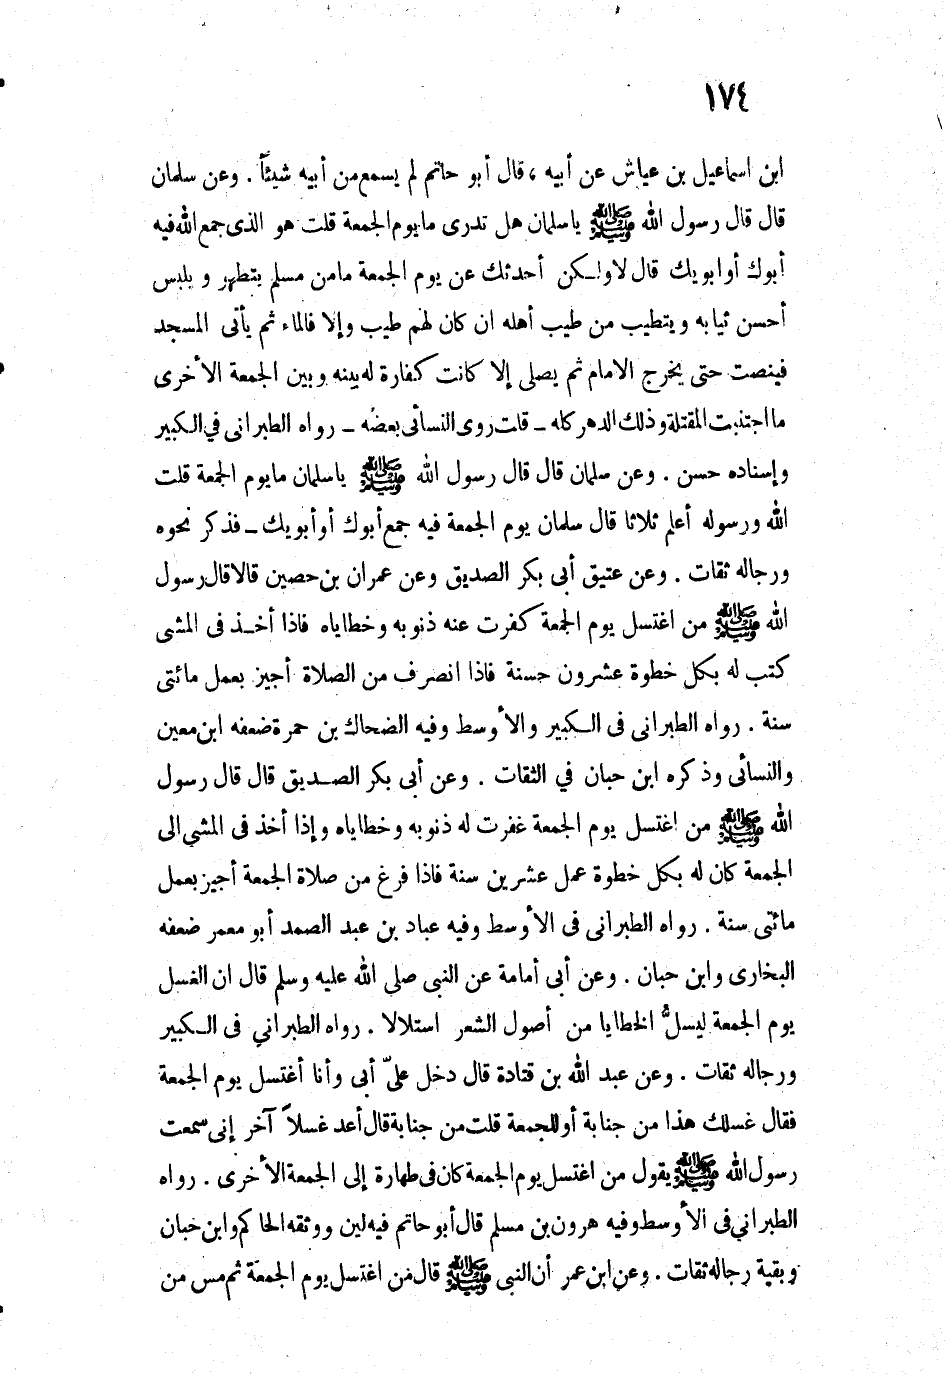 ١٧٤
ابن اسماعيل بن عياش عن أبيه ، قال أبو حاتم لم يسمع من أبيه شيئاً . وعن سلمان
قال قال رسول الله ﷺ ياسلمان هل تدرى مايوم الجمعة قلت هو الذى جمع الله فيه
أبوك أو أبويك قال لا ولكن أحدثك عن يوم الجمعة مامن مسلم يتطهر و يلبس
أحسن ثيابه و يتطيب من طيب أهله ان كان لهم طيب وإلا فالماء ثم يأتى المسجد
فينصت حتى يخرج الامام ثم يصلى إلا كانت كفارة له بينه وبين الجمعة الأخرى
ما اجتنبت المقتلة وذلك الدهر كله ــ قلت روى النسائى بعضه ــ رواه الطبرانى في الكبير
وإسناده حسن . وعن سلمان قال قال رسول الله ﷺ ياسلمان مايوم الجمعة قلت
الله ورسوله أعلم ثلاثا قال سلمان يوم الجمعة فيه جمع أبوك أو أبويك ــ فذكر نحوه
ورجاله ثقات . وعن عتيق أبى بكر الصديق وعن عمران بن حصين قالا قال رسول
الله ﷺ من اغتسل يوم الجمعة كفرت عنه ذنوبه وخطاياه فاذا أخذ فى المشى
كتب له بكل خطوة عشرون حسنة فاذا انصرف من الصلاة أجيز بعمل مائتى
سنة . رواه الطبرانى فى الكبير والأوسط وفيه الضحاك بن حمرة ضعفه ابن معين
والنسائى وذكره ابن حبان في الثقات . وعن أبى بكر الصديق قال قال رسول
الله ﷺ من اغتسل يوم الجمعة غفرت له ذنوبه وخطاياه وإذا أخذ فى المشى الى
الجمعة كان له بكل خطوة عمل عشرين سنة فاذا فرغ من صلاة الجمعة أجيز بعمل
مائتى سنة . رواه الطبرانى فى الأوسط وفيه عباد بن عبد الصمد أبو معمر ضعفه
البخارى وابن حبان . وعن أبى أمامة عن النبى صلى الله عليه وسلم قال ان الغسل
يوم الجمعة ليسلُّ الخطايا من أصول الشعر استلالا . رواه الطبراني فى الكبير
ورجاله ثقات . وعن عبد الله بن قتادة قال دخل علىّ أبى وأنا أغتسل يوم الجمعة
فقال غسلك هذا من جنابة أو للجمعة قلت من جنابة قال أعد غسلاً آخر إنى سمعت
رسول الله ﷺ يقول من اغتسل يوم الجمعة كان فى طهارة إلى الجمعة الأخرى . رواه
الطبراني فى الأوسط وفيه هرون بن مسلم قال أبو حاتم فيه لين ووثقه الحاكم وابن حبان
وبقية رجاله ثقات . وعن ابن عمر أن النبى ﷺ قال من اغتسل يوم الجمعة ثم مس من